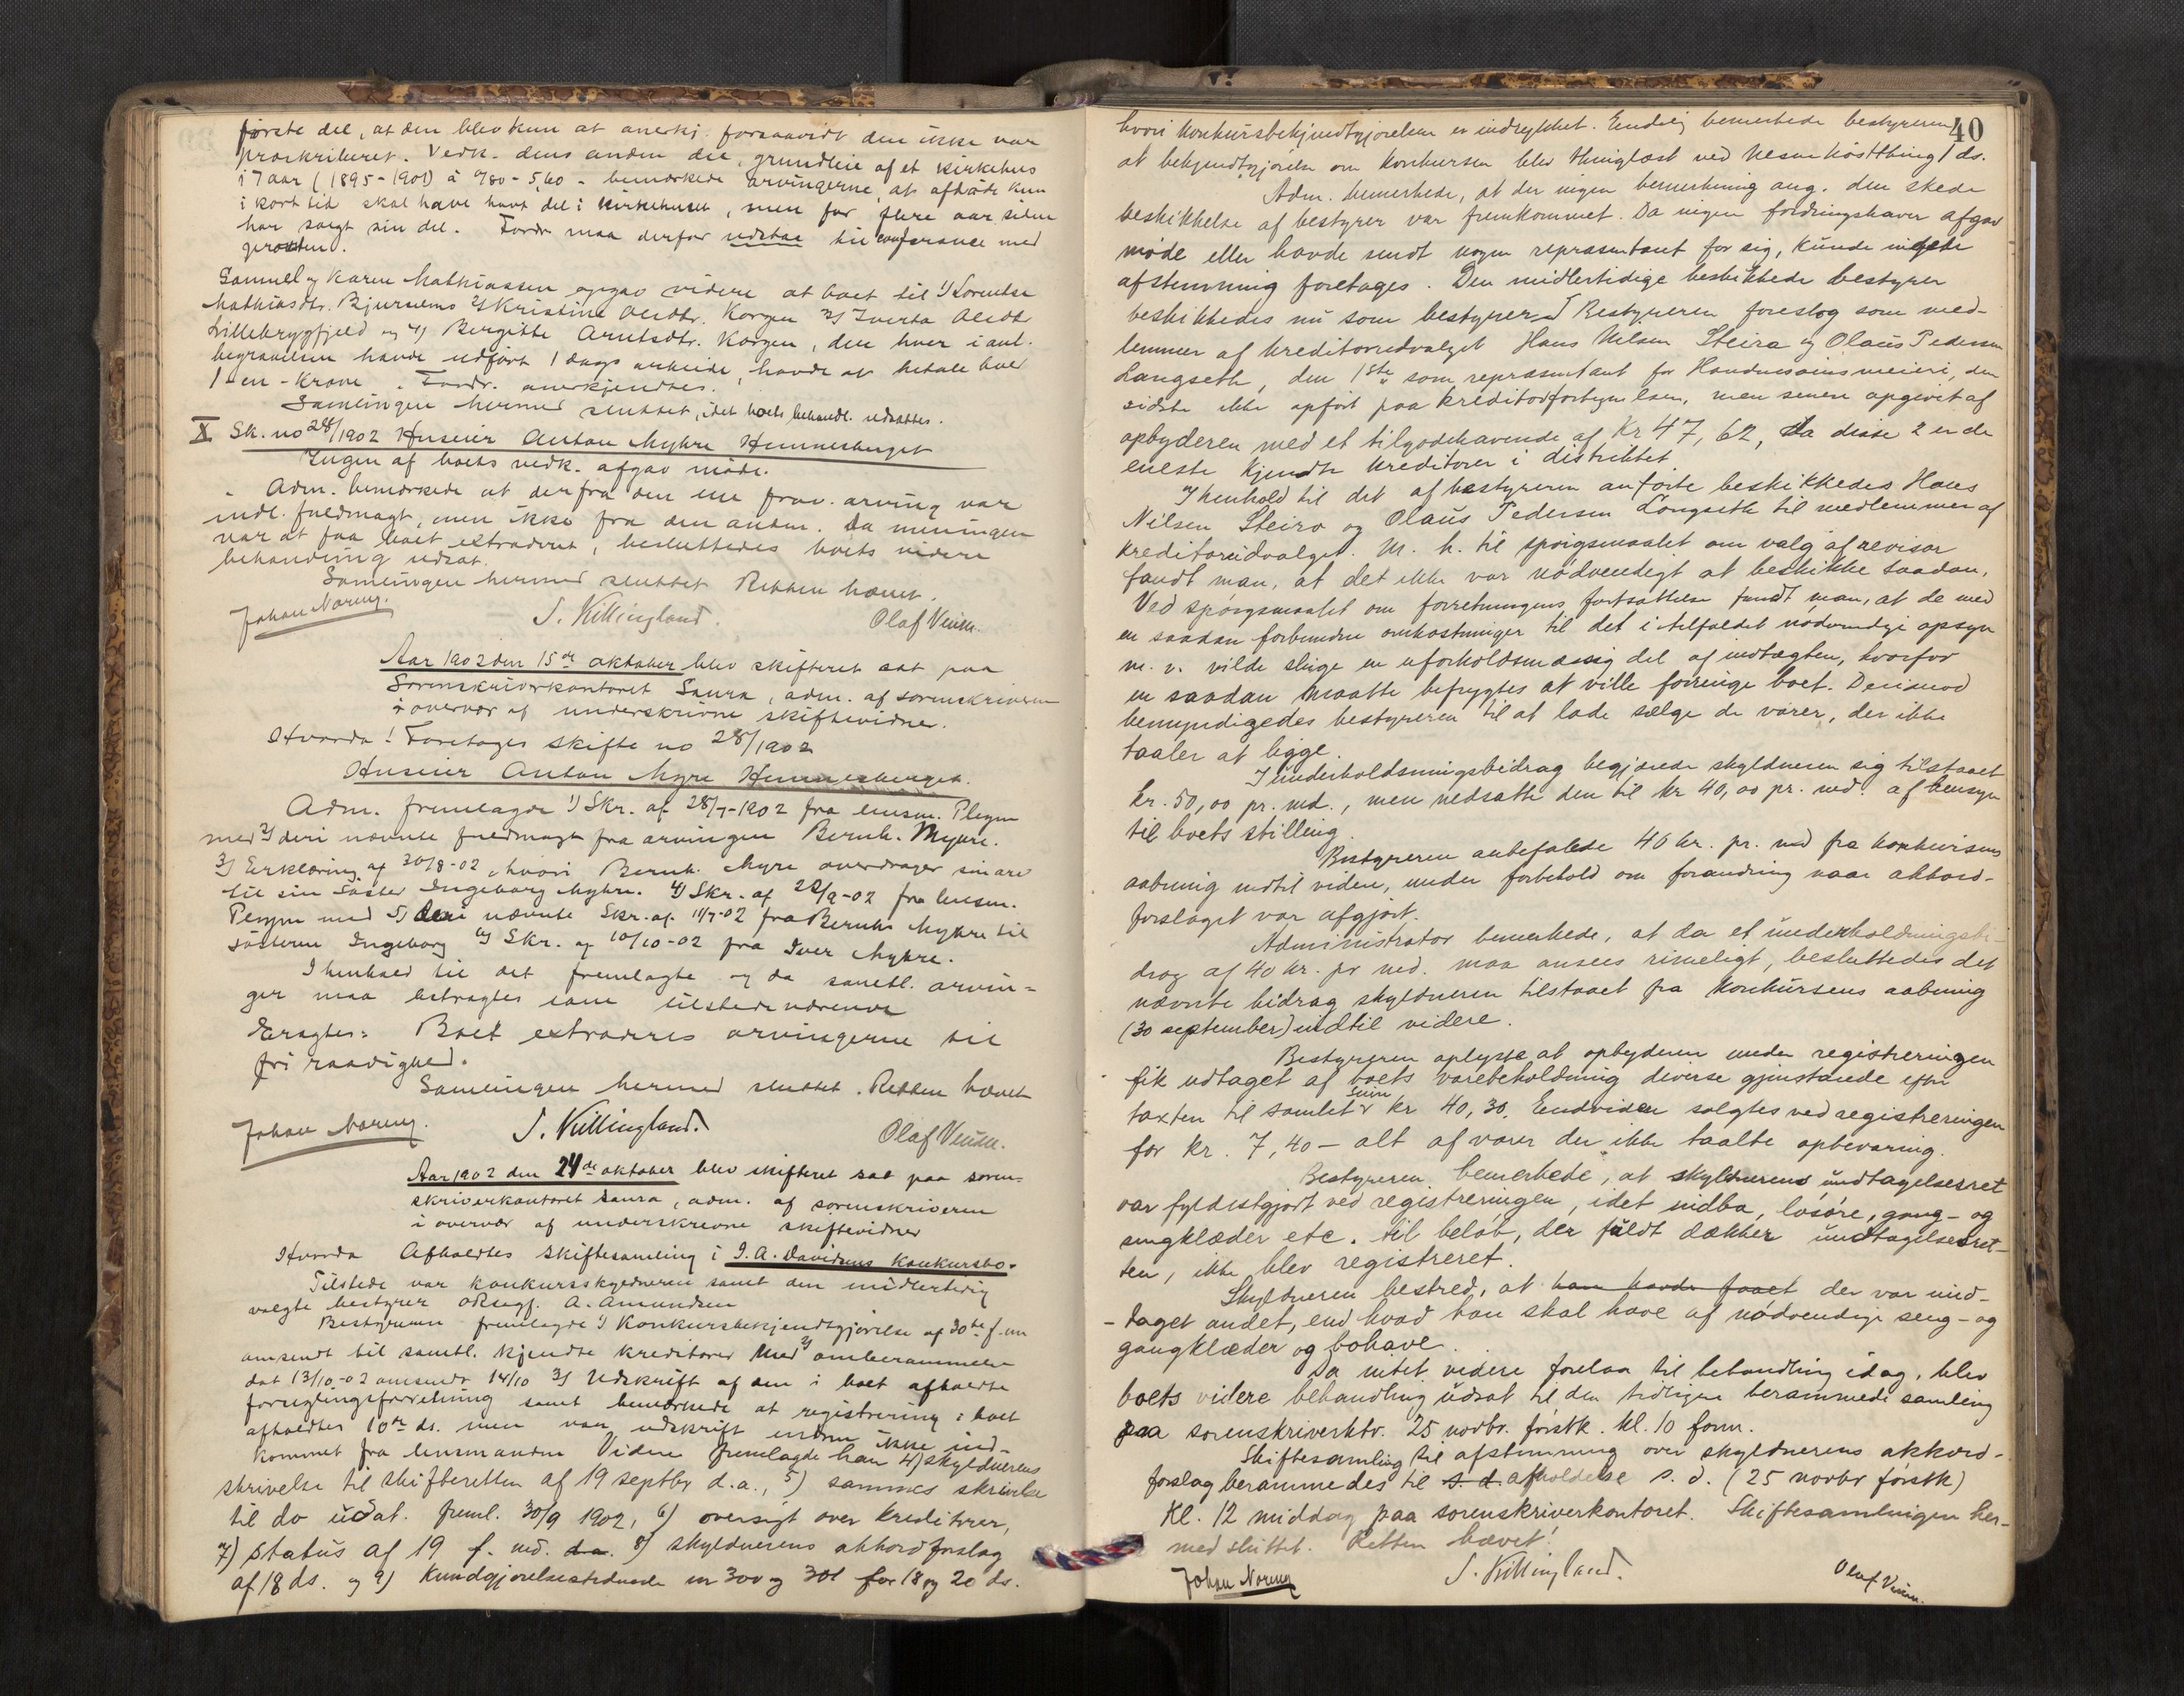 første del, at den blev kun at anerkj. forsaavidt den ikke var
proskriberet. Vedk. dens anden del, grundleie af et kirkehus
i 7 aar (1895-1901) à /80 - 5,60 - bemærkede arvingerne, at afdøde kun
i kort tid skal have havt del i kirkehuset, men for flere aar siden
har solgt sin del. Fordr. maa derfor udstaa til conferance med
Samuel og Karen Mathiassen opgav videre at boet til 1) Lorentse
Mathiasdtr. Bjurnemo 2) Kristine Olidtr. Korgen 3) Iverta Olidtr
Lillebrygfjeld og 4) Bergitte Arntsdtr. Korgen, der hver i anl.
begravelsen havde udført 1 dags arbeide, havde at betale hver
1 - en - krone. Fordr. anerkjendtes.
Samlingen hermed sluttet, idet boets behandl. udsattes.
X Sk. no 28/1902 Huseier Anton Myhre Hemnesberget
Ingen af boets vedk. afgav møde.
Adm. bemærkede at der fra den ene frav. arving var
indl. fuldmagt, men ikke fra den anden. Da meningen
var at faa boet extraderet, besluttedes boets videre
behandling udsat.
Samlingen hermed sluttet Retten hævet.
Johan Noreng. S. Killingland. Olaf Veum.
Aar 1902 den 15de oktober blev skifteret sat paa
Sorenskriverkontoret Saura, adm. af sorenskriveren
i overvær af underskrivne skiftevidner.
Hvorda! Foretoges skifte no 28/1902
Huseier Anton Myre Hemnesberget.
Adm. fremlagde 1) Skr. af 28/7-1902 fra lensm. Plegm
med 2) deri nævnte fuldmagt fra arvingen Bernh. Myhre.
3) Erklæring af 30/8-02, hvori Bernh. Myre overdrager sin arv
til sin søster Ingeborg Myhre. 4) Skr. af 22/9-02 fra lensm.
Plegm med 5) deri nævnte Skr. af 11/7-02 fra Bernh. Myhre til
søsteren Ingeborg 6) Skr. af 10/10-02 fra Iver Myhre.
I henhold til det fremlagte og da samtl. arvin-
ger maa betragtes som tilstedeværende
Eragtes: Boet extraderes arvingerne til
fri raadighed.
Samlingen hermed sluttet. Retten hævet
Johan Noreng. S. Killingland. Olaf Veum.
Aar 1902 den 24de oktober blev skifteret sat paa soren-
skriverkontoret Saura, adm. af sorenskriveren
i overvær af underskrevne skiftevidner
Hvorda Afholdtes skiftesamling i I. A. Davidsens konkursbo.
Tilstede var konkursskyldneren samt den midlertidig
valgte bestyrer A. Amundsen
Bestyreren fremlagde 1) Konkursbekjendtgjørelse af 30te f. m
omsendt til samtl. kjendte kreditorer med 2) omberammelse
dat 13/10-02 omsendt 14/10 3) Udskrift af den i boet afholdte
forseglingsforretning samt bemærkede at registrering i boet
afholdtes 10de ds. men var udskrift endnu ikke ind-
kommet fra lensmanden Videre fremlagde han 4) skyldnerens
skrivelse til skifteretten af 19 septbr d.a., 5) sammes skrivelse
til do udat. freml. 30/9 1902, 6) oversigt over kreditorer,
7) Status af 19 f. md. d.a. 8) skyldnerens akkordforslag
af 18 ds. og 9) Kundgjørelsestidende nr 300 og 301 for 18 og 20 ds.
40
hvori konkursbekjendtgjørelsen er indrykket. Endelig bemerkede bestyreren
at bekjendtgjørelse om konkursen blev thinglæst ved Nesne høstthing 1 ds.
Adm. bemerkede, at der ingen bemerkning ang. den skede
beskikkelse af bestyrer var fremkommet. Da ingen fordringshaver afgav
møde eller havde sendt nogen repræsentant for sig, kunde ingen
afstemning foretages. Den midlertidige beskikkede bestyrer
beskikkedes nu som bestyrer. Bestyreren foreslog som med-
lemmer af kreditorudvalget Hans Nilsen Steira og Olaus Pedersen
Langseth, den 1ste som repræsentant for Handnesøens meieri, den
sidste ikke opført paa kreditorfortegnelsen, men senere opgivet af
opbyderen med et tilgodehavende af Kr 47,62, da disse 2 er de
eneste kjendte kreditorer i distriktet
I henhold til det af bestyreren anførte beskikkedes Hans
Nilsen Steiro og Olaus Pedersen Longseth til medlemmer af
kreditorudvalget. M. h. til spørgsmaalet om valg af revisor
fandt man, at det ikke var nødvendigt at beskikke saadan.
Ved spørgsmaalet om forretningens fortsættelse fandt man, at de med
en saadan forbundne omkostninger til det i tilfældet nødvendige opsyn
m. v. vilde sluge en uforholdsmæssig del af indtægten, hvorfor
en saadan maatte befrygtes at ville forringe boet. Derimod
bemyndigedes bestyreren til at lade sælge de varer, der ikke
taaler at ligge.
I underholdningsbidrag begjærede skyldneren sig tilstaaet
kr. 50,00 pr. md., men nedsatte den til kr 40,00 pr. md. af hensyn
til boets stilling.
Bestyreren anbefalede 40 kr. pr. md fra konkursens
aabning indtil videre, under forbehold om forandring naar akkord-
forslaget var afgjort.
Administrator bemerkede, at da et underholdningsbi-
drag af 40 kr. pr md. maa ansees rimeligt, besluttedes det
nævnte bidrag skyldneren tilstaaet fra konkursens aabning
(30 september) indtil videre.
Bestyreren oplyste at opbyderen under registreringen
fik udtaget af boets varebeholdning diverse gjenstande efter
taxten til samlet sum kr 40,30. Endvidere solgtes ved registreringen
for kr. 7,40 - alt af varer der ikke taalte opbevaring.
Bestyreren bemerkede, at skyldnerens undtagelsesret
var fyldestgjort ved registreringen, idet indbo, løsøre, gang- og
sengklæder etc. til beløb, der fuldt dækker undtagelsesret-
ten, ikke blev registreret.
Skyldneren bestred, at han havde faaet der var und-
taget andet, end hvad han skal have af nødvendige seng- og
gangklæder og bohave.
Da intet videre forelaa til behandling idag, blev
boets videre behandling udsat til den tidligere berammede samling
paa sorenskriverktr. 25 novbr. førstk. kl. 10 form.
Skiftesamling til afstemning over skyldnerens akkord-
forslag berammedes til s. d. afholdelse s. d. (25 novbr førstk)
Kl. 12 middag paa sorenskriverkontoret. Skiftesamlingen her-
med sluttet. Retten hævet!
Johan Noreng S. Killingland. Olaf Veum.